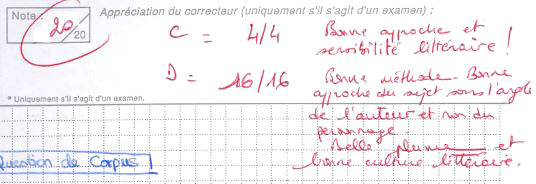 Note : 20/20
Appréciation du correcteur (uniquement s'il s'agit d'un examen) :
C = 4/4 Bonne approche et
sensibilité littéraire !
D = 16/16 Bonne méthode - Bonne
approche du sujet sous l'angle
* Uniquement s'il s'agit d'un examen.
de l'auteur et non du
personnage.
Belle plume et
bonne culture littéraire.
Question de Corpus